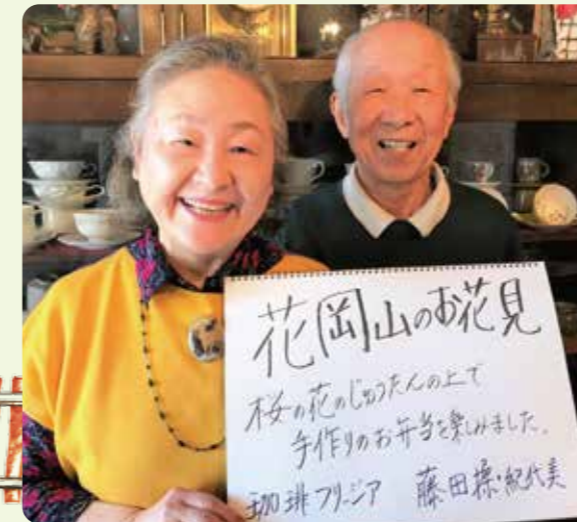 花岡山のお花見
桜の花のじゅうたんの上で
手作りのお弁当を楽しみました。
珈琲フリージア 藤田操・紀代美